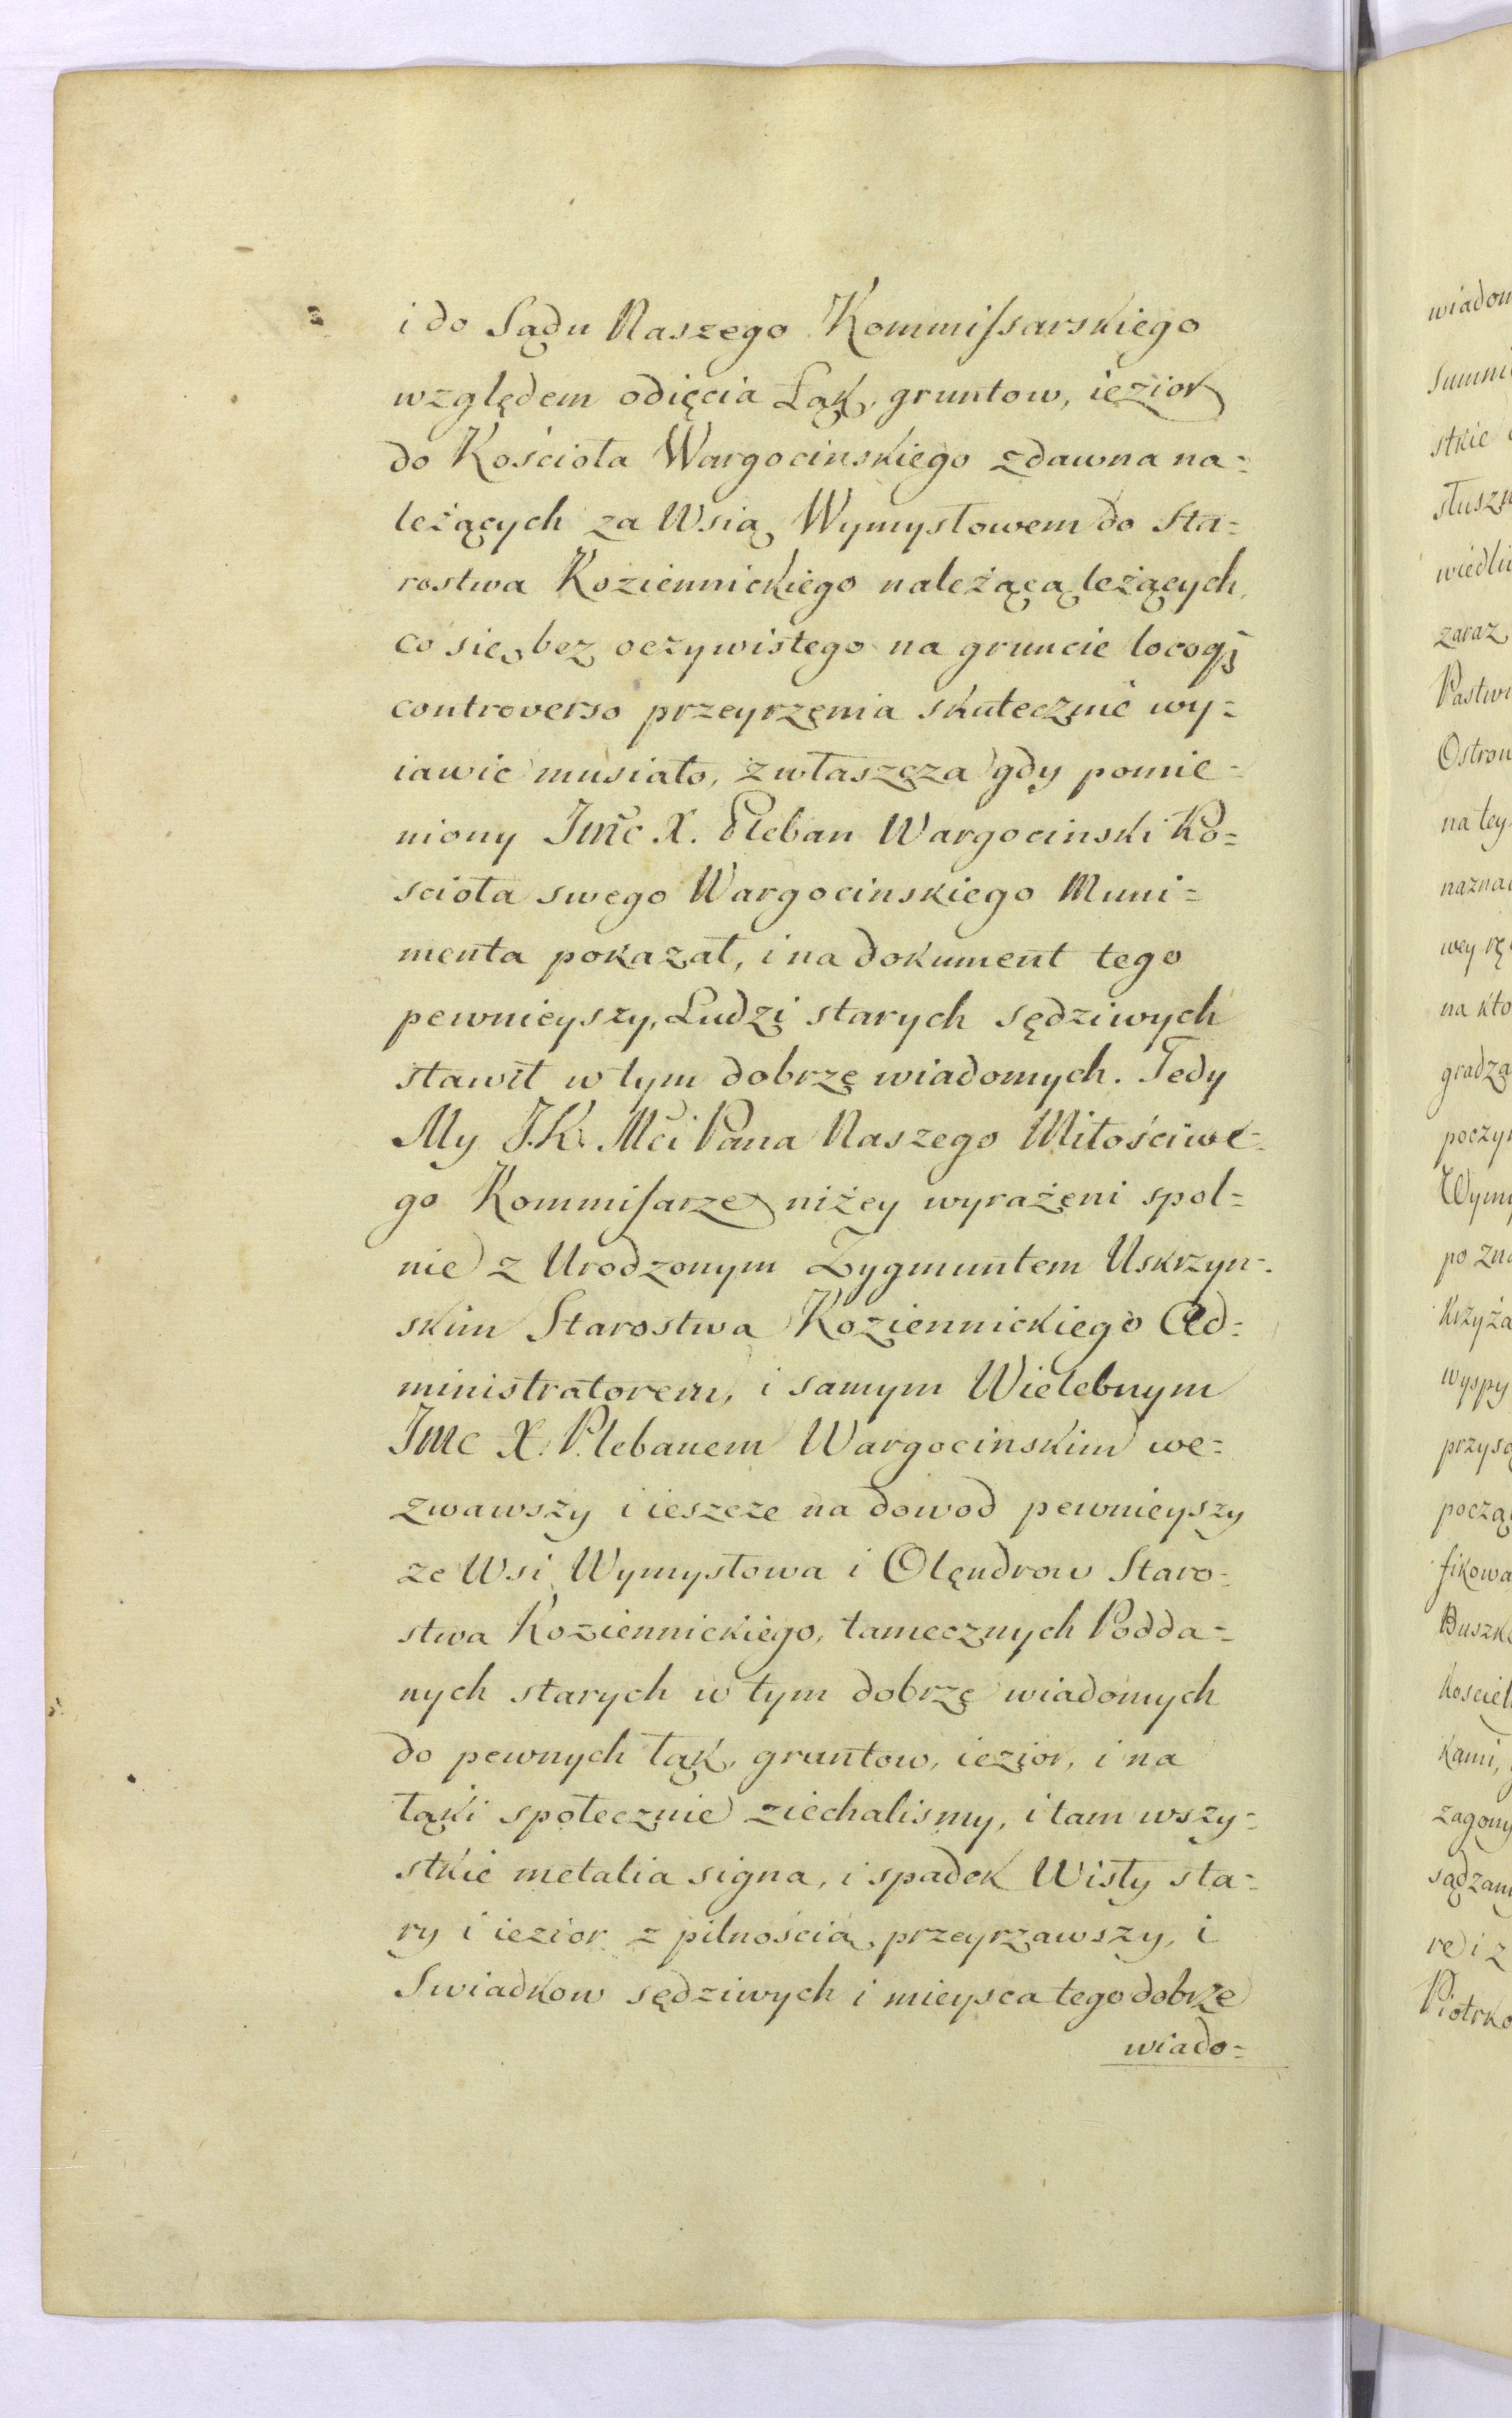 i do Sądu Naszego Kommissarskiego
względem odięcia Łąk, gruntow, iezior
do Kościoła Wargocinskiego zdawna na=
leżących za Wsią Wymysłowem do Sta=
rostwa Koziennickiego należącą leżących,
co się bez oczywistego na gruncie locoq3
controverso przeyrzenia skutecznie wy=
iawić musiało, zwłaszcza gdy pomie=
niony Jmć X. Pleban Wargocinski Ko=
scioła swego Wargocinskiego Muni=
menta pokazał, i na dokument tego
pewnieyszy, Ludzi starych sędziwych
stawił w tym dobrze wiadomych. Tedy
My J.K. Mći Pana Naszego Miłościwe=
go Kommisarze niżey wyrażeni spol=
nie z Urodzonym Zygmuntem Uskrzyn=
skim Starostwa Koziennickiego Ad=
ministratorem, i samym Wielebnym
Jmc X. Plebanem Wargocinskim we=
zwawszy i ieszcze na dowod pewnieyszy
ze Wsi Wymysłowa i Olęndrow Staro=
stwa Koziennickiego, tamecznych Podda=
nych starych w tym dobrze wiadomych
do pewnych łąk, gruntow, iezior, i na
łąki społecznie ziechalismy, i tam wszy=
stkie metalia signa, i spadek Wisły sta=
ry i iezior z pilnością przeyrzawszy, i
Swiadkow sędziwych i mieysca tego dobrze
wiado=
wiadom
Summi
stkie
słuszn
wiedli
zaraz
Pastwi
Ostrow
na tey
naznac
wey rę
na kto
gradzą
poczyn
Wymy
po zna
Krzyża
wyspy
przyso
począ
fikowa
Buszko
Koscieł
kami,
zagony
sądzam
re i z
Piotrko